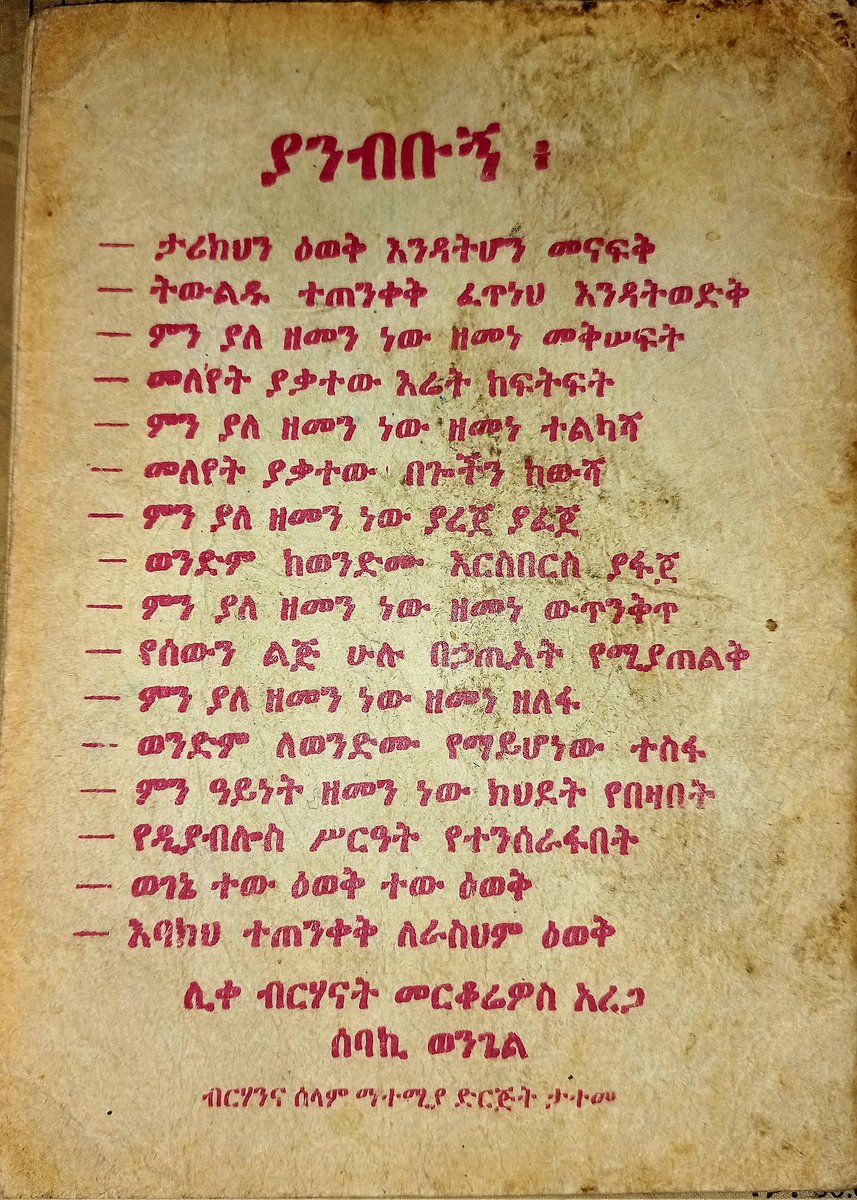 ያንብቡኝ ፤
— ታሪክህን ዕወቅ እንዳትሆን መናፍቅ
— ትውልዱ ተጠንቀቅ ፈጥነህ እንዳትወድቅ
— ምን ያለ ዘመን ነው ዘመነ መቅሠፍት
— መለየት ያቃተው እሬት ከፍትፍት
— ምን ያለ ዘመን ነው ዘመነ ተልካሻ
— መለየት ያቃተው በጐችን ከውሻ
— ምን ያለ ዘመን ነው ያረጀ ያፈጀ
— ወንድም ከወንድሙ እርስበርስ ያፋጀ
— ምን ያለ ዘመን ነው ዘመነ ውጥንቅጥ
— የሰውን ልጅ ሁሉ በኃጢአት የሚያጠልቅ
— ምን ያለ ዘመን ነው ዘመነ ዘለፋ
— ወንድም ለወንድሙ የማይሆነው ተስፋ
— ምን ዓይነት ዘመን ነው ክህደት የበዛበት
— የዲያብሎስ ሥርዓት የተንሰራፋበት
— ወገኔ ተው ዕወቅ ተው ዕወቅ
— እባክህ ተጠንቀቅ ለራስህም ዕወቅ
ሊቀ ብርሃናት መርቆሬዎስ አረጋ
ሰባኪ ወንጌል
ብርሃንና ሰላም ማተሚያ ድርጅት ታተመ